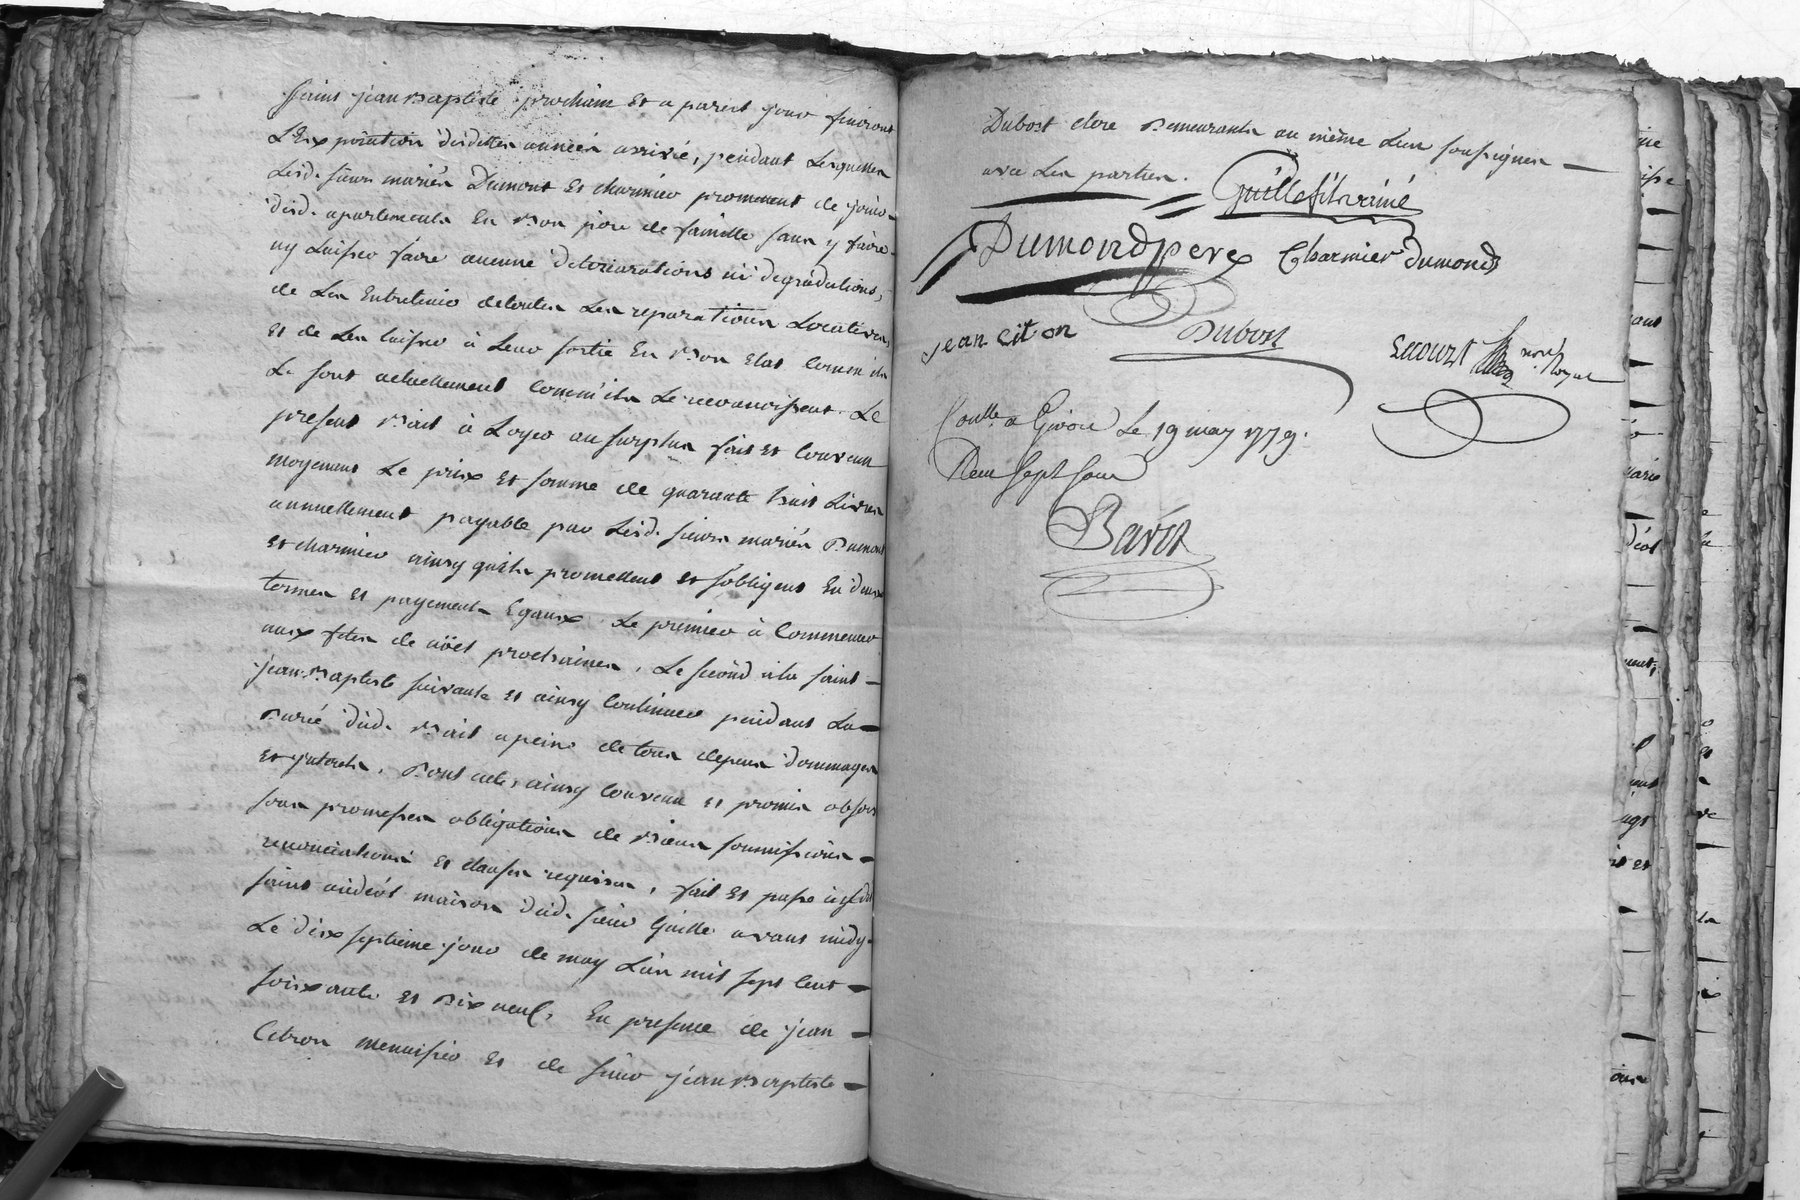 saint jean Baptiste prochain et a pareil jour finiront
L'Expiration desdittes années arrivé, pendant Lesquelles
Lesd. sieurs mariés Dumont et charmier promettent de jouir
desd. apartements En Bon pere de famille sans y faire
ny Laisser faire aucune déteriorations ni dégradations,
de Les Entretenir de toutes Les reparations Locatives
et de Les laisser à Leur sortie En Bon Etat comm'ils
Le sont actuellement comm'ils Le reconoissent. Le
present Bail à Loyer au surplus fait et convenu
moyenant Le prix et somme de quarante huit Livres
annuellement payable par Lesd. sieurs mariés Dumont
et charmier ainsy quils promettent et s'obligent En deux
termes et payements Egaux. Le premier à Commencer
aux fetes de nöel prochaines, Le second à la saint
jean Baptiste suivante et ainsy Continuer pendant La
Durée dud. Bail a peine de tous depens dommages
et interets. Dont acte, ainsy convenu et promis observer
sous promesses obligations de Biens soumissions
renonciations et clauses requises, fait et passé
saint andéol maison dud. sieur Guille avant midy
Le dix septieme jour de may L'an mil sept cent
soixante et Dix neuf, En presence de jean
Citron menuisier et de sieur jean Baptiste
Dubost clerc Demeurants au même Lieu soussignes
avec Les parties.
Guille fils ainé
Dumond pere Charmier dumond
jean citron Dubost Secourt nore. Royal
Contllé. a Givors Le 19 may 1779.
Reçu sept sous